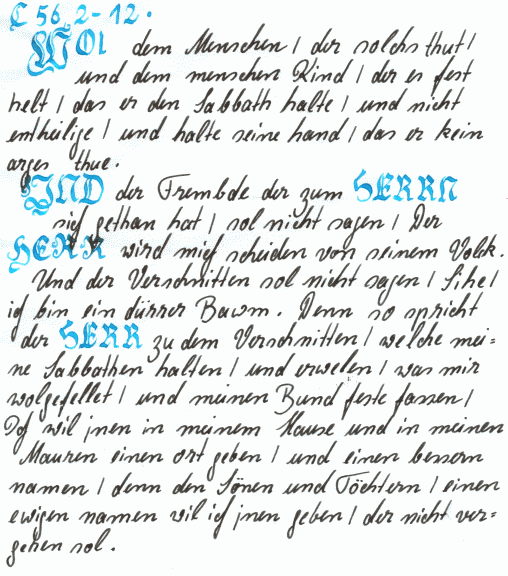 C 56, 2-12.
WOl dem Menschen / der solchs thut /
und dem menschen Kind / der es fest
helt / das er den Sabbath halte / und nicht
entheilige / und halte seine hand / das er kein
arges thue.
UND der Frembde der zum HERRN
sich gethan hat / sol nicht sagen / Der
HERR wird mich scheiden von seinem Volck.
Und der Verschnitten sol nicht sagen / Sihe /
ich bin ein dürrer Bawm. Denn so spricht
der HERR zu dem Verschnitten / welche mei=
ne Sabbathen halten / und erwelen / was mir
wolgefellet / und meinen Bund feste fassen /
Ich wil jnen in meinem Hause und in meinen
Mauren einen ort geben / und einen bessern
namen / denn den Sönen und Töchtern / einen
ewigen namen wil ich jnen geben / der nicht ver=
gehen sol.